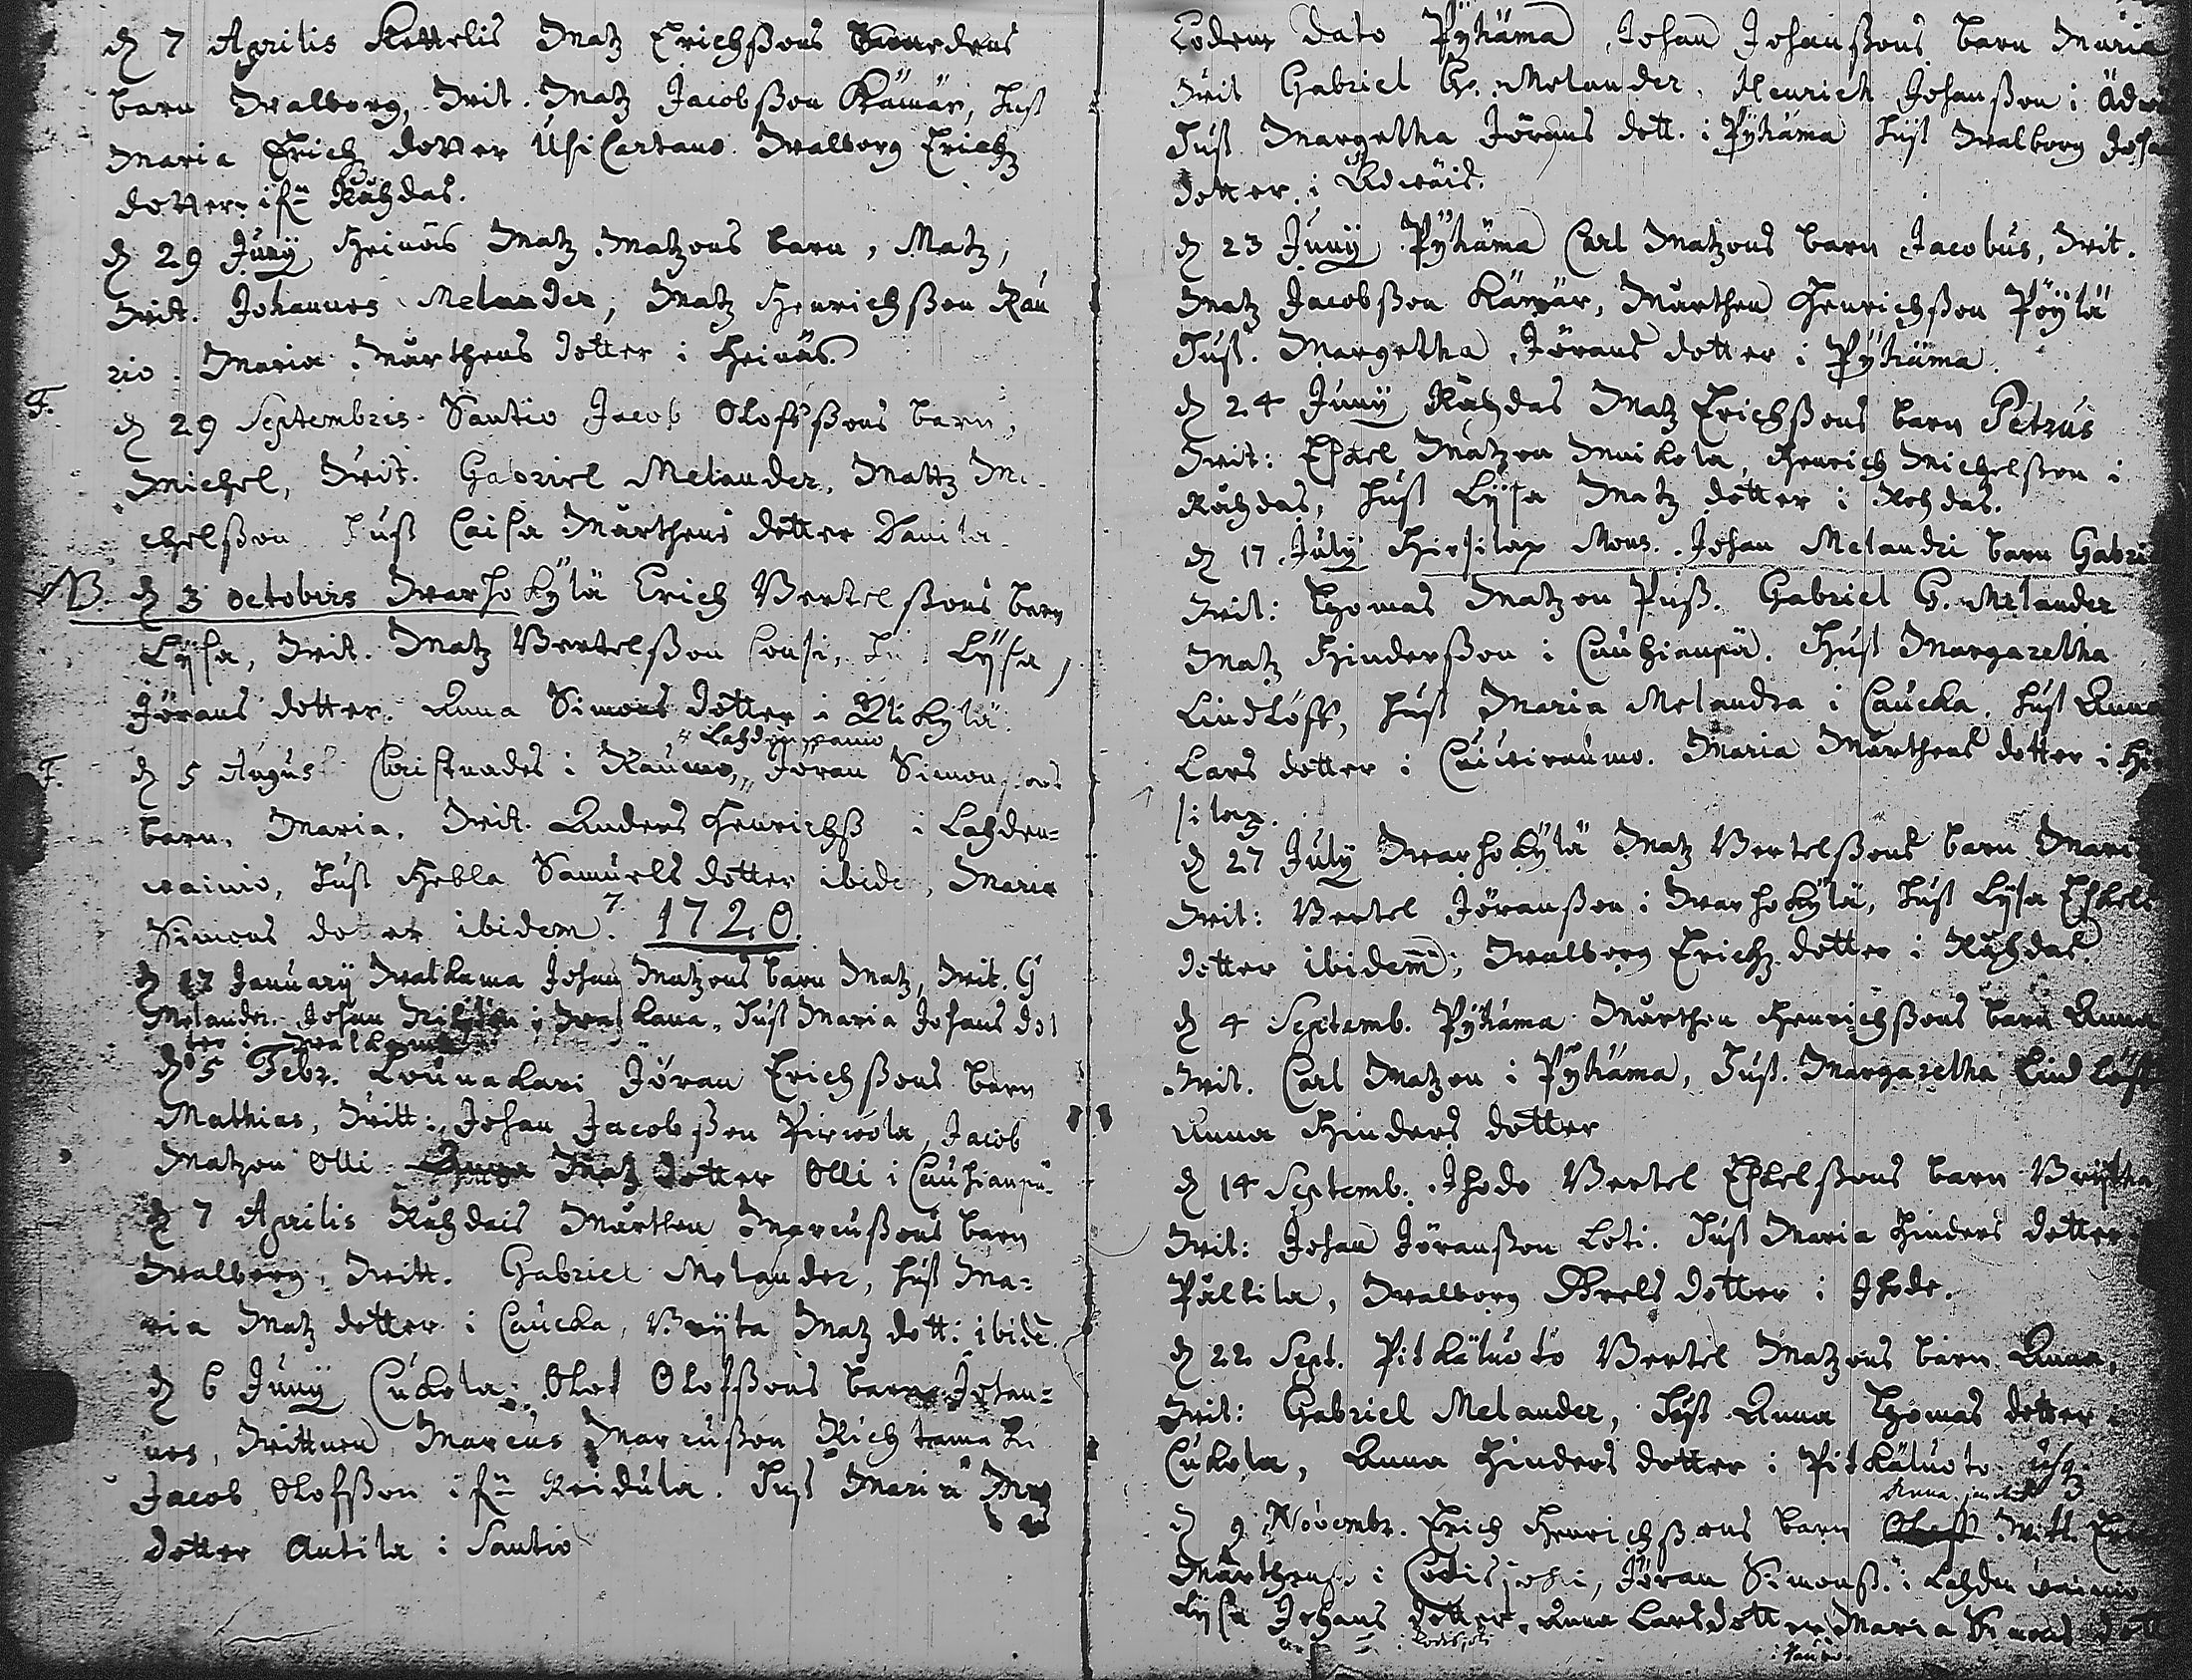 d 7 Aprilis Kettelis Matz Erichßons
barn Walborg, Wit. Matz Jacobßon Kämär, Hust
Maria Erichz dotter Usicartano. Walborg Erichz
dotter ifn Rähdas.
d 29 Junÿ Heinäs Matz Matzons barn, Matz,
Wit. Johannes Melander, Matz Henrichßon Rau
rio. Maria Mårthens dotter i Heinäs.
F. d 29 Septembris Santio Jacob Olofsßons barn,
Michel, Wit. Gabriel Melander, Mattz Mi-
chelßon Hust Caisa Mårthens dotter Danila.
NB. d 3 octobris Warhokÿlä Erich Bertelßons barn
Lÿsa, Wit. Matz Bertelßon Lÿsa,
Jörans dotter. Anna Simons dotter i Ylikÿlä.
Lahdenwainio
F. d 5 August Christnades i Raumo, Jöran Simonßons
barn, Maria. Wit. Anders Henrichß i Lahden=
wainio, Hust Hebla Samuels dotter ibide, Maria
Simons dotter ibidem. 7. 1720.
d 17 Januarÿ Walkama Johan Matzons barn Matz, Wit. G
Melander. Johan i Walkama. Hust Maria Johans dot
ter i Walkama
d 5 Febr. Lounakari Jöran Erichßons barn
Mathias, Witt: Johan Jacobßon Pirwola, Jacob
Matzon Olli. Anna Matz dotter Olli i Cauhianpä.
d 7 Aprilis Rähdais Mårthen Marcußons barn
Walborg, Witt. Gabriel Melander, Hust Ma=
ria Matz dotter i Caucka, Brÿta Matz dott: ibide.
d 6 Junÿ Cukola: Olof Olofßons barn Johan=
nes, Wittnen Marcus Marcußon Richtama
Jacob Olofßon ifn Reidula. Hust Maria
dotter Antila i Santio
Eodem dato Pÿhäma Johan Johanßons barn Maria
Wit Gabriel G. Melander. Henrich Johanßon i
Hust Margetha Jörans dott. i Pÿhäma Hust Walborg Joha
dotter i Ädwäis.
d 23 Junÿ Pÿhäma Carl Matzons barn Jacobus, Wit.
Matz Jacobßon Kämär, Mårthen Henrichßon Pöÿlä
Hust. Margetha Jörans dotter i Pÿhäma.
d 24 Junÿ Rähdas Matz Erichßons barn Petrus
Wit: Eskel Matzon Muikola, Henrich Michelßon i
Rähdas, Hust Lÿsa Matz dotter i Rohdas.
d 17 Julÿ Hirsilax Mons. Johan Melandri barn Gabri
Wit: Thomas Matzon Puß. Gabriel G. Melander
Matz Hinderßon i Cauhianpä. Hust Margaretha
Lindlöff, Hust Maria Melandra i Caucka. Hust Anna
Lars dotter i Maria Mårthens dotter i Hir
silax.
d 27 Julÿ Warhokÿlä Matz Bertelßons barn Mari
Wit: Bertel Jöranßon i Warhokÿlä, Hust Lÿsa Eskels
dotter ibidem; Walborg Erichz dotter i Rähdas.
d 4 Septemb. Pÿhäma Mårthen Henrichßons barn Anna
Wit. Carl Matzon i Pÿhäma, Hust. Margaretha Lindlöff
Anna Hinders dotter
d 14 Septemb. Ihode Bertel Eskelßons barn Brÿtha
Wit: Johan Jöranßon Loti. Hust Maria Hinders dotter
Pältila, Walborg dotter i Ihode.
d 22 Sept. Pitkäluoto Bertel Matzons barn Anna,
Wit: Gabriel Melander, Hust Anna Thomas dotter i
Cukola, Anna Hinders dotter i Pitkäluoto
Anna
d 9 Novembr. Erich Henrichßons barn Witt.
Mårthenß i Codisjoki, Jöran Simonß. i Lahdenwainio
Lÿsa Johans dotter, Anna Lars dotter Maria Simons dott
i Kodisjoki